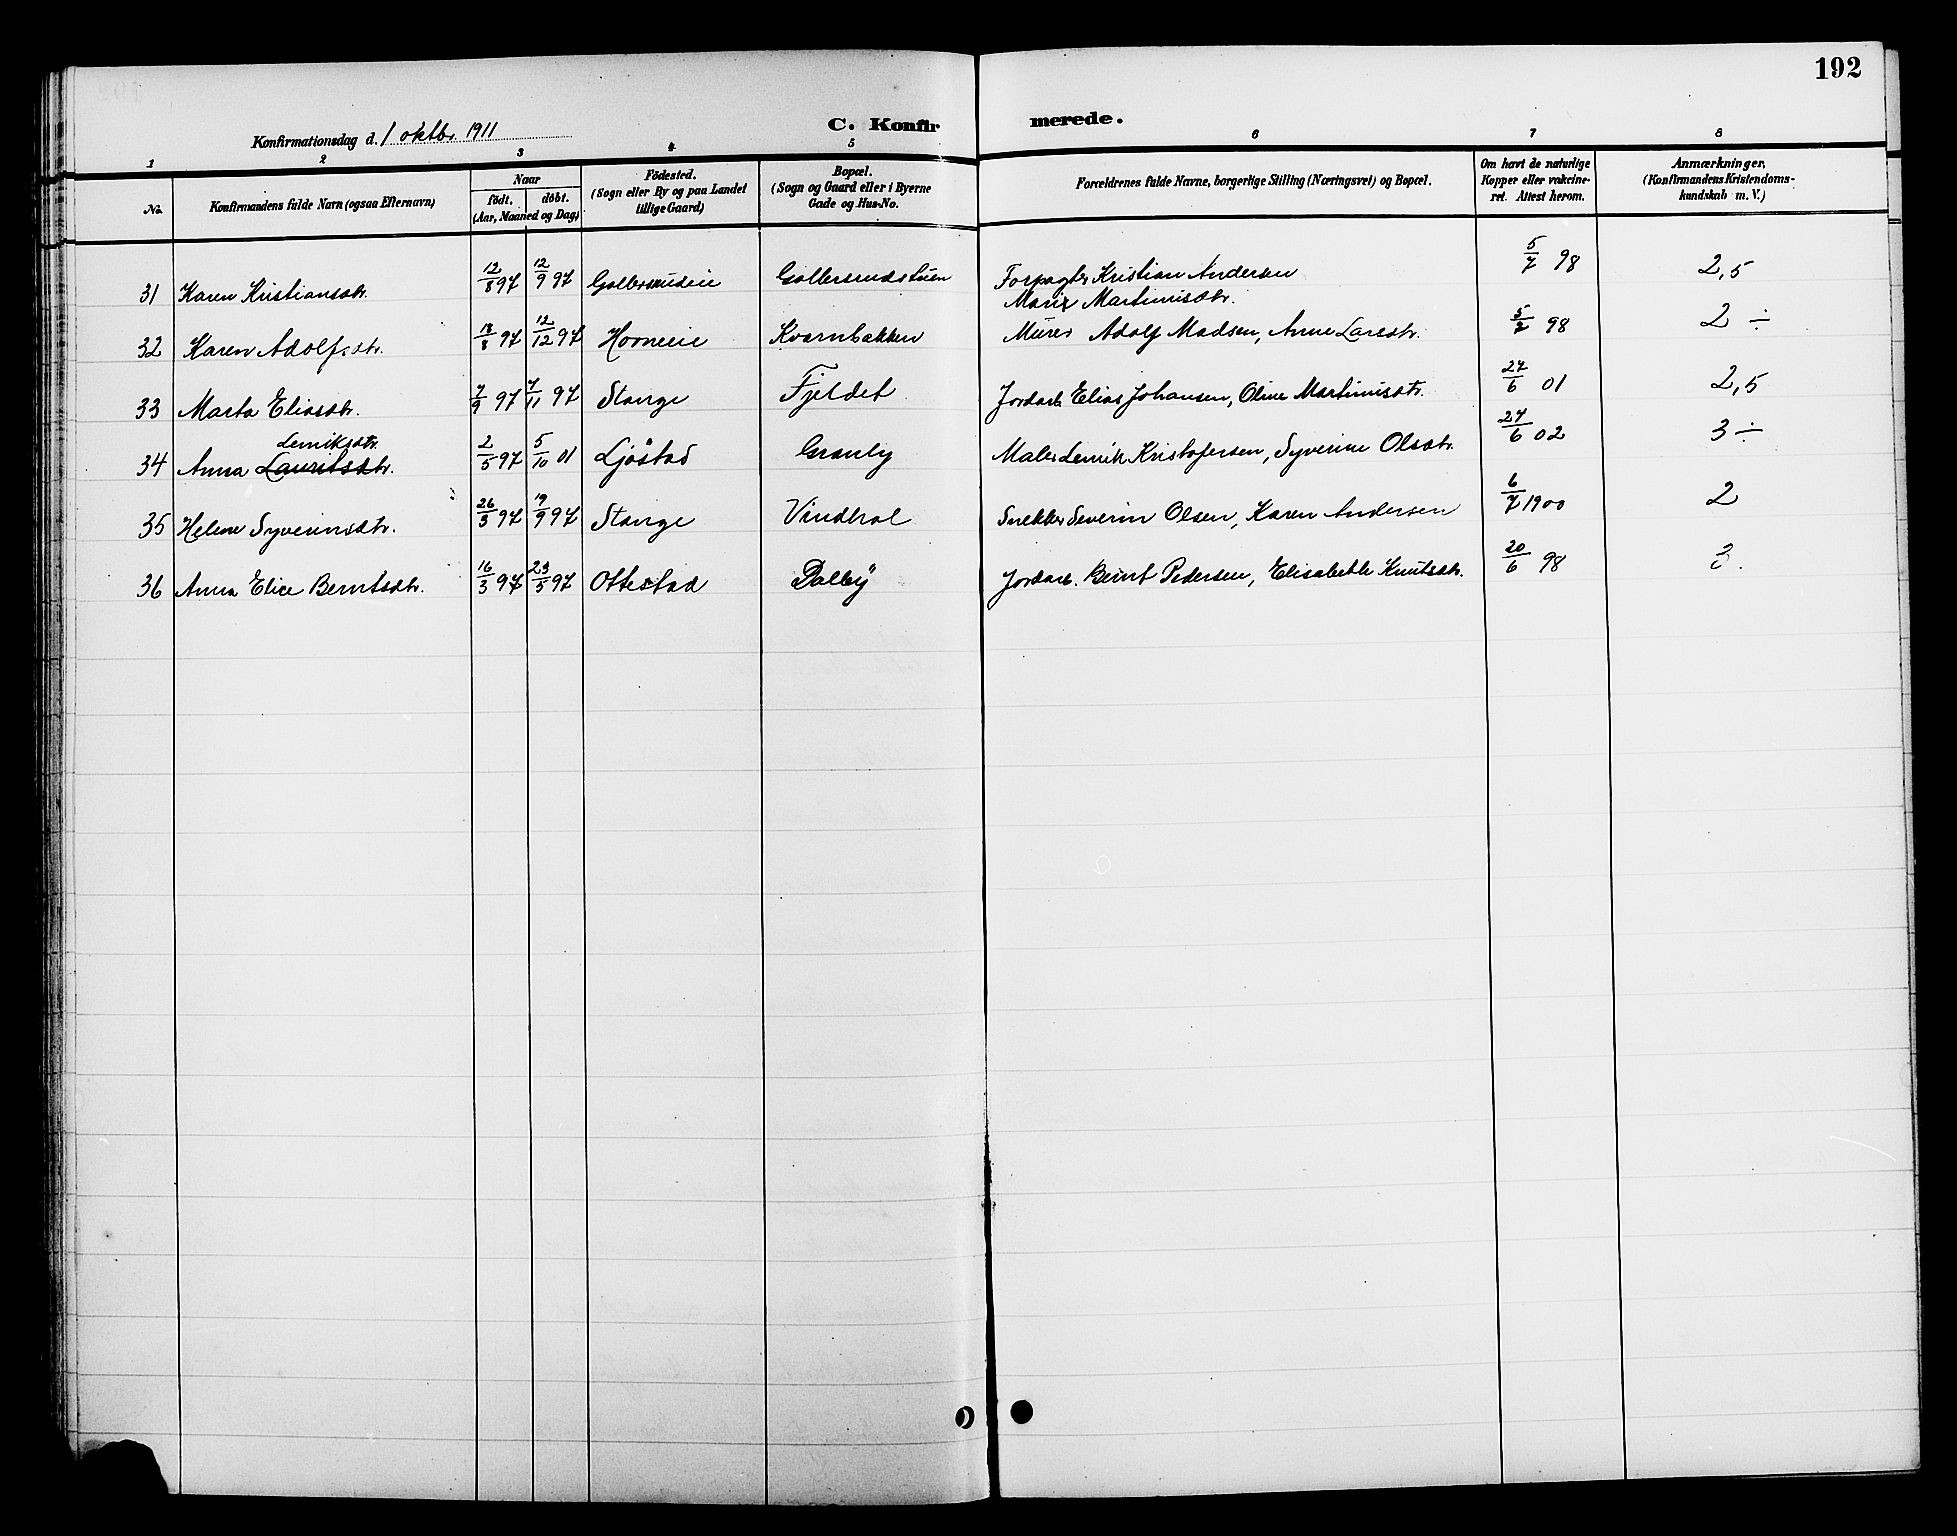 192
Konfirmationsdag d. 1 oktbr. 1911
C. Konfirmerede.
1 2 3 4 5 6 7 8
No.
Konfirmandens fulde Navn (ogsaa Efternavn)
Naar
födt. döbt.
(Aar, Maaned og Dag)
Födested.
(Sogn eller By og paa Landet
tillige Gaard)
Bopæl.
(Sogn og Gaard eller i Byerne
Gade og Hus-No.
Forældrenes fulde Navne, borgerlige Stilling (Næringsvei) og Bopæl.
Om havt de naturlige
Kopper eller vakcine-
ret. Attest herom.
Anmærkninger.
(Konfirmandens Kristendoms-
kundskab m. V.)
31 Karen Kristiansdtr. 12/8 97 12/9 97 Golbersrudeie Golbersrudstuen Forpagter Kristian Andersen 5/7 98 2,5
Marie Martinusdtr.
32 Karen Adolfsdtr. 18/8 97 12/12 97 Horneie Kvernbækken Murer Adolf Madsen, Anne Larsdtr. 5/7 98 2 ÷
33 Marta Eliasdtr. 7/9 97 7/11 97 Stange Fjeldet Jordarb. Elias Johansen, Oline Martinusdtr. 27/6 01 2,5
Lenriksdtr.
34 Anna Lauritsdtr. 2/5 97 5/10 01 Ljøstad Granly Maler Lenrik Kristofersen, Syverine Olsdtr. 27/6 02 3 ÷
35 Helene Syverinsdtr. 26/3 97 19/9 97 Stange Vindhol Snekker Severin Olsen, Karen Andersen 6/7 1900 2
36 Anna Elice Berntsdtr. 16/3 97 23/5 97 Ottestad Dalby Jordarb. Bernt Pedersen, Elisabethe Knutsdtr. 20/6 98 3.